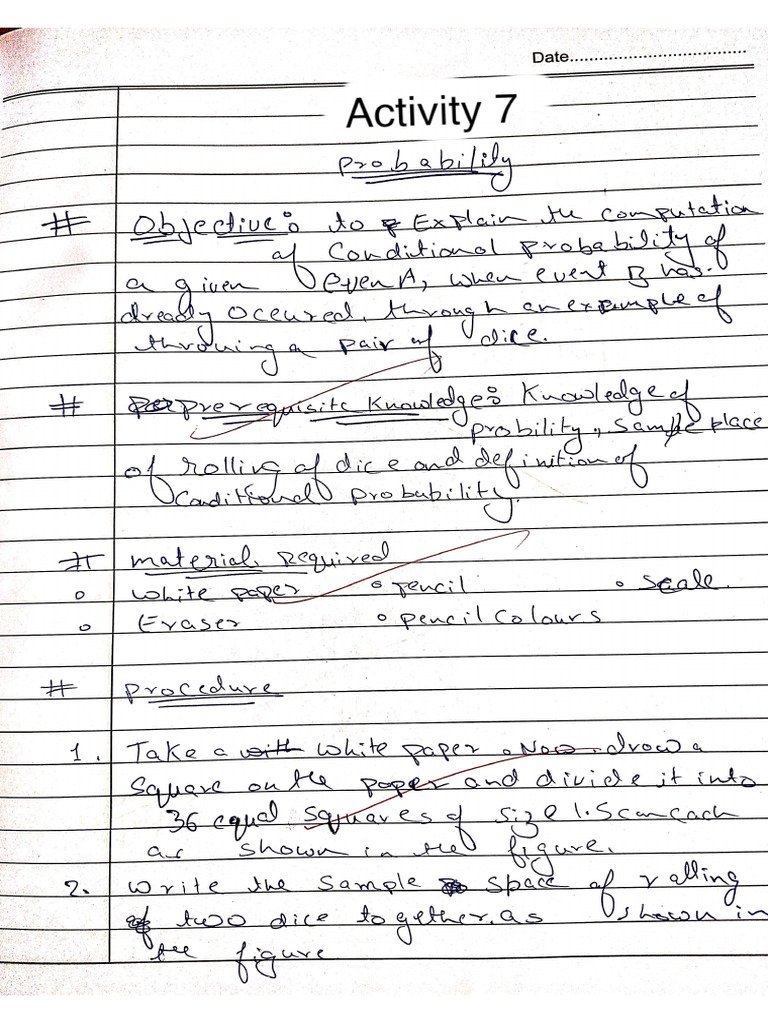 Date
Activity 7
Probability
# Objective: to Explain the computation
of Conditional probability of
a given Even A, when event B has
dready Oceured, through an example of
throwing a pair of dice.
# Prerequisite Knowledge: Knowledge of
probility, Sample place
of rolling of dice and definition of
Conditional Probability.
# material Required
o White paper o pencil o Scale.
o Eraser o pencil Colours
# Procedure
1. Take a White paper. Now draw a
Square on the paper and divide it into
36 equal squares of size 1.5cm each
as shown in the figure.
2. Write the Sample Space of ralling
of two dice together. as shown in
the figure